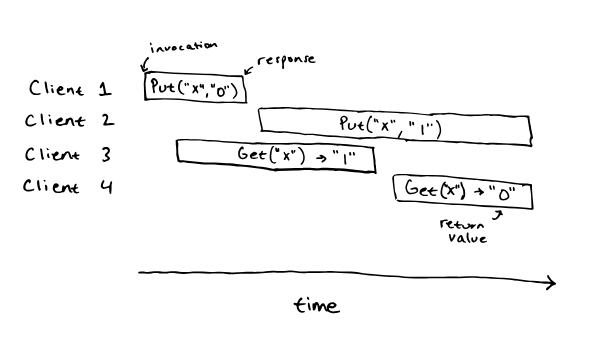 invocation
response
Client 1
Put("x","0")
Client 2
Put("x", "1")
Client 3
Get("x") → "1"
Client 4
Get("x") → "0"
return
value
time